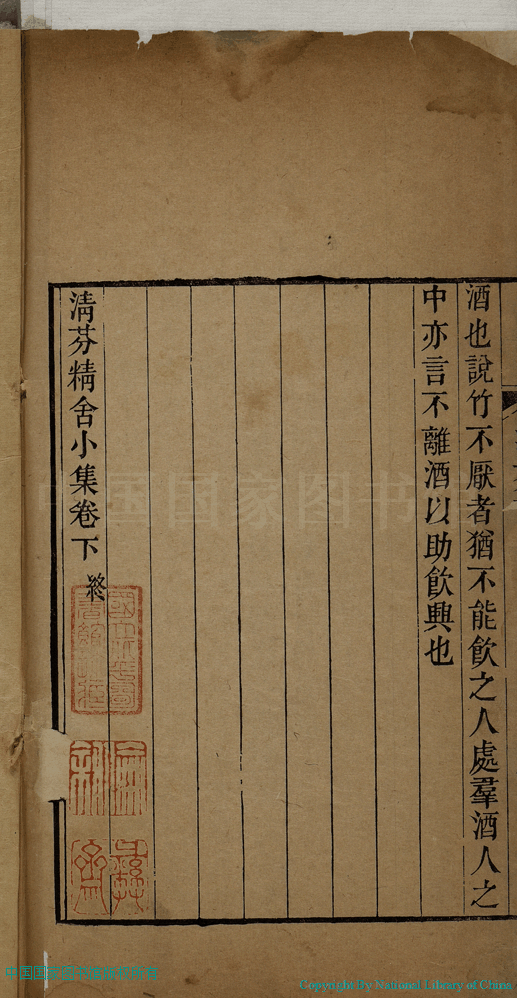 酒也說竹不厭者猶不能飲之人處羣酒人之
中亦言不離酒以助飲興也
清芬精舍小集卷下 終
國立北平圖書館收藏
中国国家图书
Copyright By National Library of China